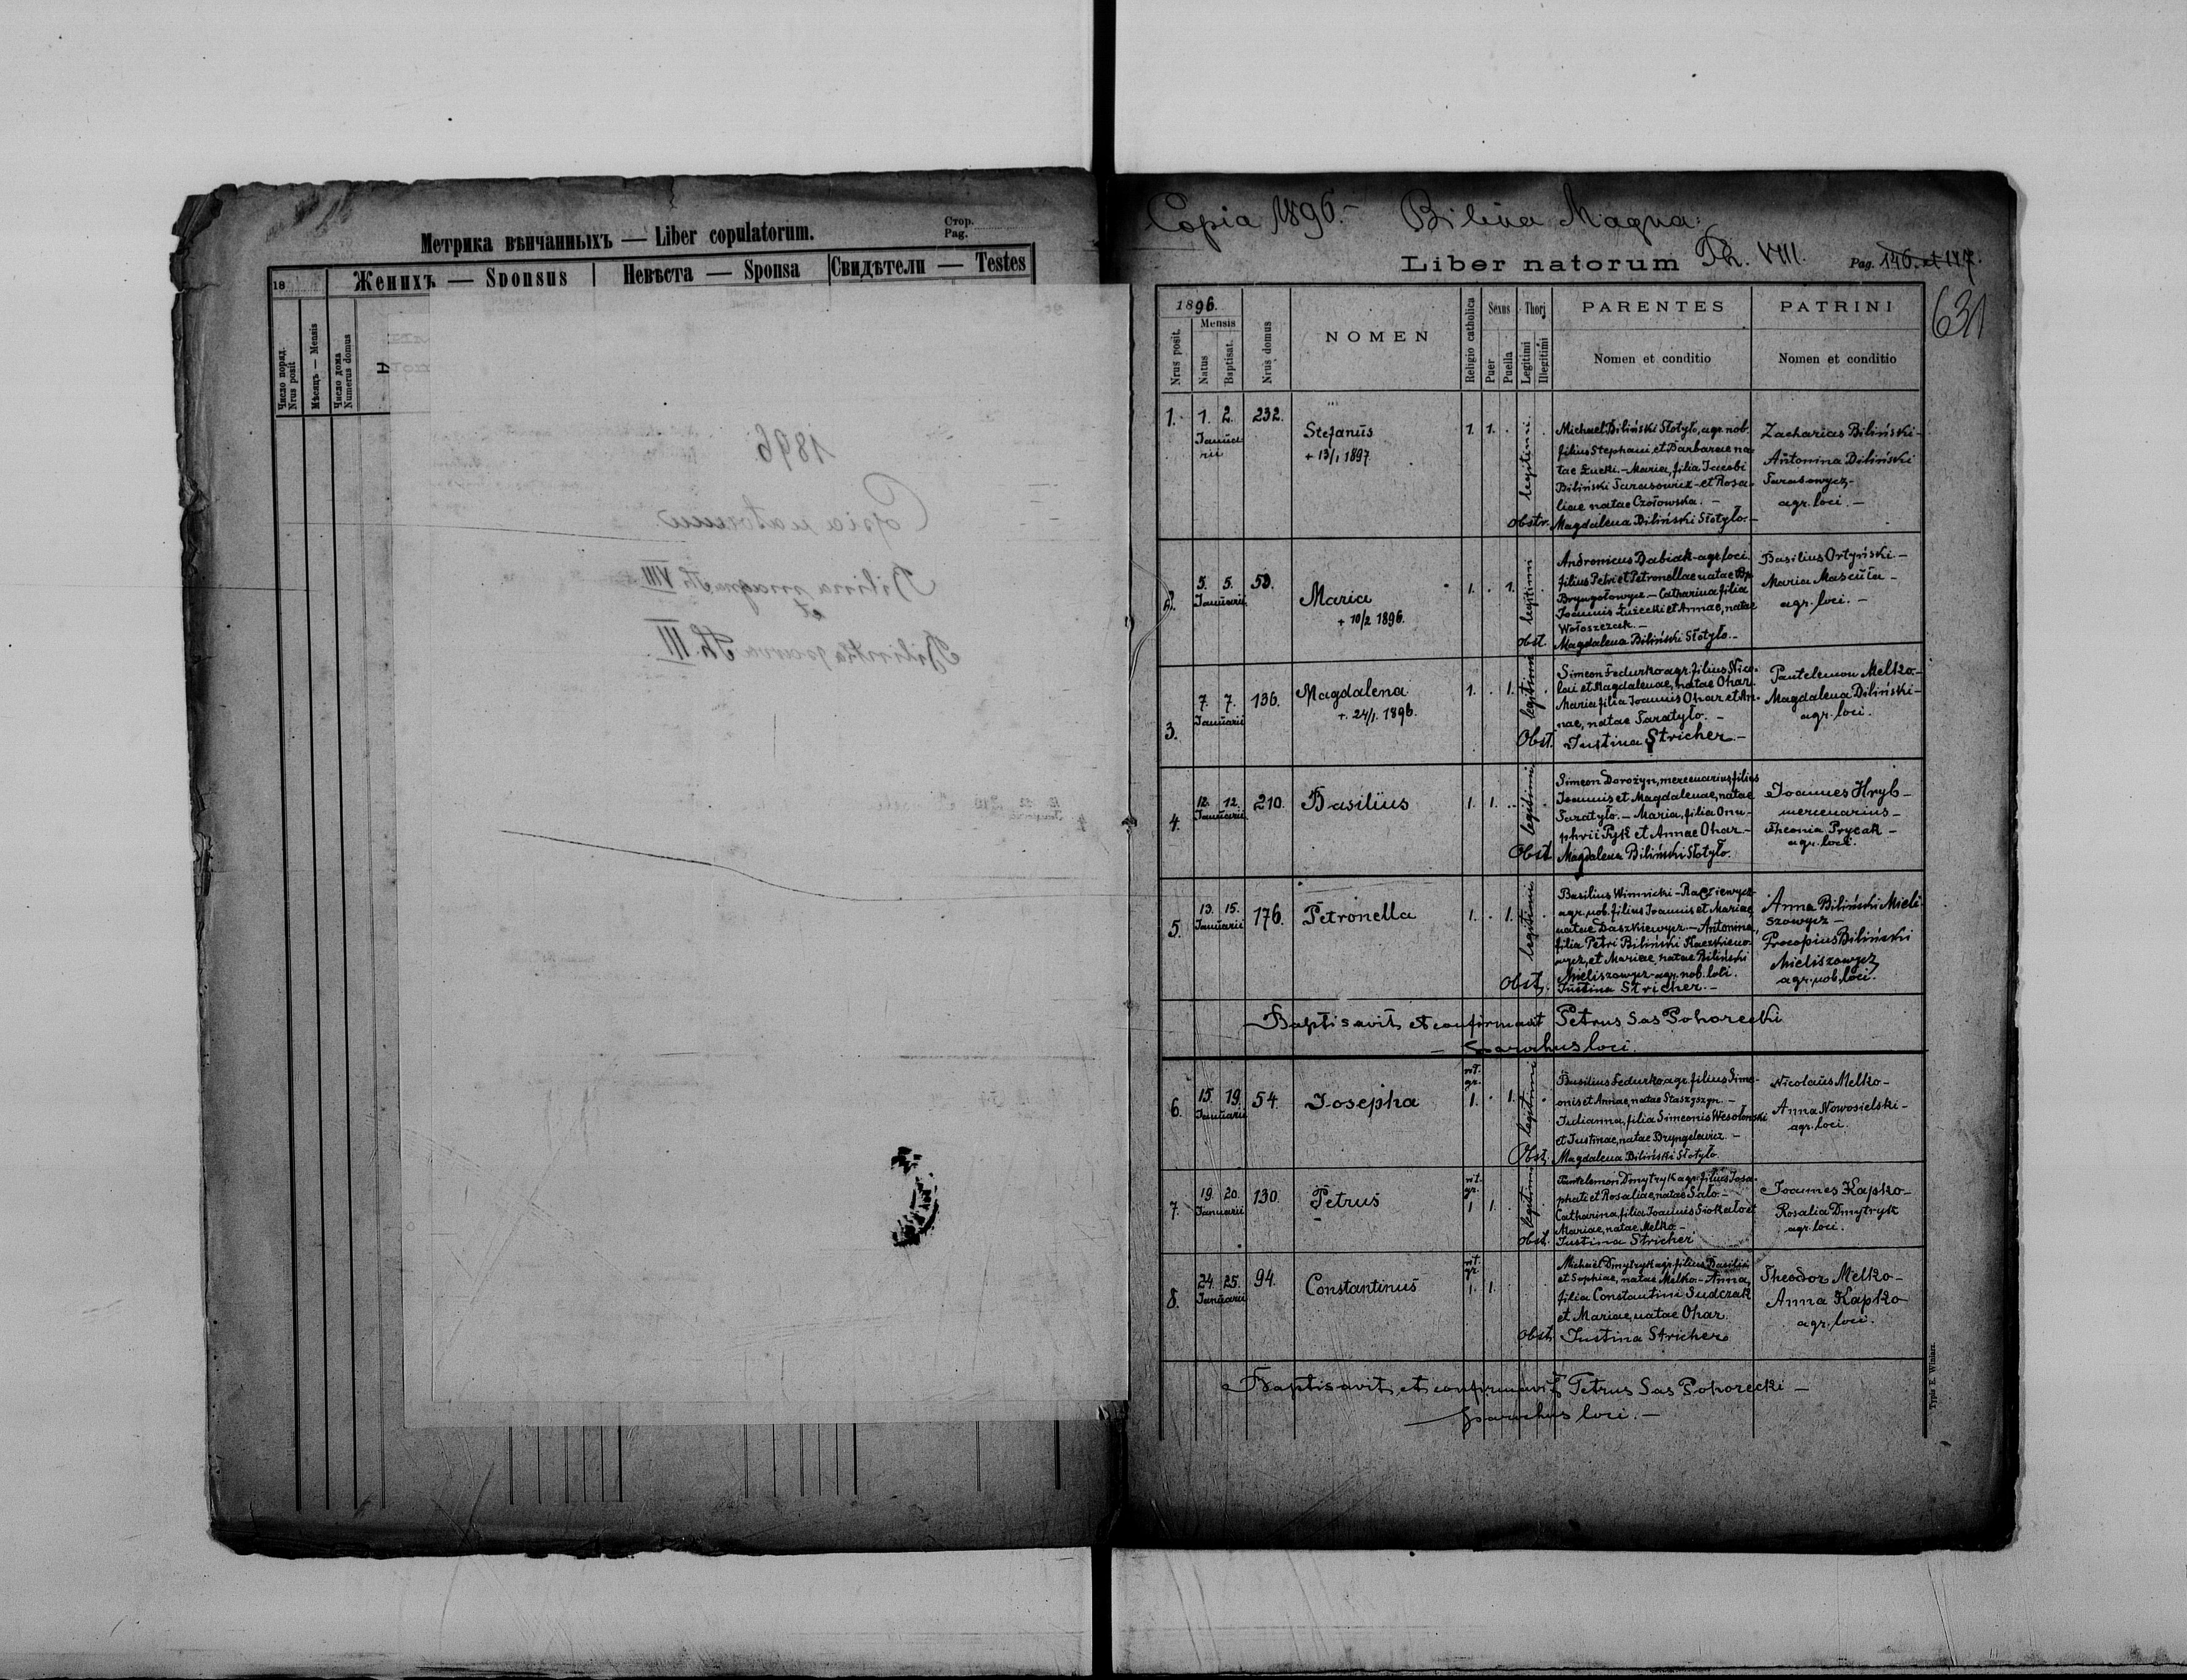 Стор.
Pag.
Метрика вѣнчанныхъ — Liber copulatorum.
18
Женихъ — Sponsus
Невѣста — Sponsa
Свидѣтели — Testes
Число поряд.
Nrus posit
Мѣсяцъ — Mensis
Число дома
Numerus domus
1896
Copia natorum
Bilina magna Th. VIII
et
Bilinka parva Th. III
Copia 1896.— Bilina Magna.
Liber natorum Th. VIII.
Pag. 146. et 147.
631
1896.
Mensis
Nrus posit.
Natus
Baptisat.
Nrus domus
NOMEN
Religio catholica
Sexus
Puer
Puella
Thorj
Legitimi
Illegitimi
PARENTES
Nomen et conditio
PATRINI
Nomen et conditio
1. 1. 2. 232.
Januarii
Stefanus
+ 13/1 1897
1. 1. .
legitimi
Michael Biliński Słotyło, agr. nob.
filius Stephani, et Barbarae na-
tae Łucki. — Maria, filia Jacobi
Biliński Tarasowicz - et Rosa-
liae natae Czołowska. —
Obstr. Magdalena Biliński Słotyło. —
Zacharias Biliński —
Antonina Biliński
Tarasowycz —
agr. loci. —
2. 5. 5. 50.
Januarii
Maria
+ 10/2 1896.
1. . 1.
legitimi
Andronicus Babiak - agr. loci
filius Petri et Petronellae natae
Bryngołowycz — Catharina filia
Joannis Łużecki et Annae, natae
Wołoszczak. —
Obst. Magdalena Biliński Słotyło. —
Basilius Ortyński —
Maria Mascuła —
agr. loci. —
3. 7. 7. 136.
Januarii
Magdalena
+. 24/1. 1896.
1. . 1. .
legitimi
Simeon Fedurko agr. filius Nico-
lai et Magdalenae, natae Ohar.
Maria filia Joannis Ohar et An-
nae, natae Taratyło. —
Obst. Justina Stricher —
Pantelemon Melko —
Magdalena Biliński —
agr. loci.
4. 12. 12. 210.
Januarii
Basilius
1. 1. . .
legitimi
Simeon Dorożyn, mercenarius, filius
Joannis et Magdalenae, natae
Taratyło. — Maria, filia Onu-
phrii Pyk et Annae Ohar —
Obst. Magdalena Biliński Słotyło.
Joannes Hryb —
mercenarius —
Theonia Prycak —
agr. loci.
5. 13. 15. 176.
Januarii
Petronella
1. . 1. .
legitimi
Basilius Winnicki - Racziewycz
agr. nob. filius Joannis et Mariae,
natae Daszkiewycz — Antonina,
filia Petri Biliński Kaczkieno-
wycz, et Mariae, natae Biliński
Mieliszowycz - agr. nob. loci.
Obst. Justina Stricher. —
Anna Biliński Mieli-
szowycz —
Procopius Biliński
Mieliszowycz
agr. nob. loci.
Baptisavit et confirmavit Petrus Sas Pohorecki
— parochus loci.
6. 15. 19. 54.
Januarii
Josepha
rit.
gr.
1. . 1. .
legitimi
Basilius Fedurko agr. filius Sime-
onis et Annae, natae Staszyszyn. —
Julianna, filia Simeonis Wesołowski
et Justinae, natae Bryngelewicz. —
Obst. Magdalena Biliński Słotyło.
Nicolaus Melko —
Anna Nowosielski —
agr. loci.
7. 19. 20. 130.
Januarii
Petrus
rit.
gr.
1 1.
legitimi
Pantelemon Dmytryk agr. filius Josa-
phati et Rosaliae, natae Sało. —
Catharina, filia Joannis Siokało et
Mariae, natae Melko. —
Obst. Justina Stricher
Joannes Kapko —
Rosalia Dmytryk
agr. loci.
8. 24. 25. 94.
Januarii
Constantinus
rit.
gr.
1. 1.
Michael Dmytryk agr. filius Basilii
et Sophiae, natae Melko. — Anna,
filia Constantini Sudczak
et Mariae, natae Ohar.
Obst. Justina Stricher
Theodor Melko —
Anna Kapko
agr. loci.
Baptisavit et confirmavit Petrus Sas Pohorecki —
parochus loci. —
Typis E. Winiarz.